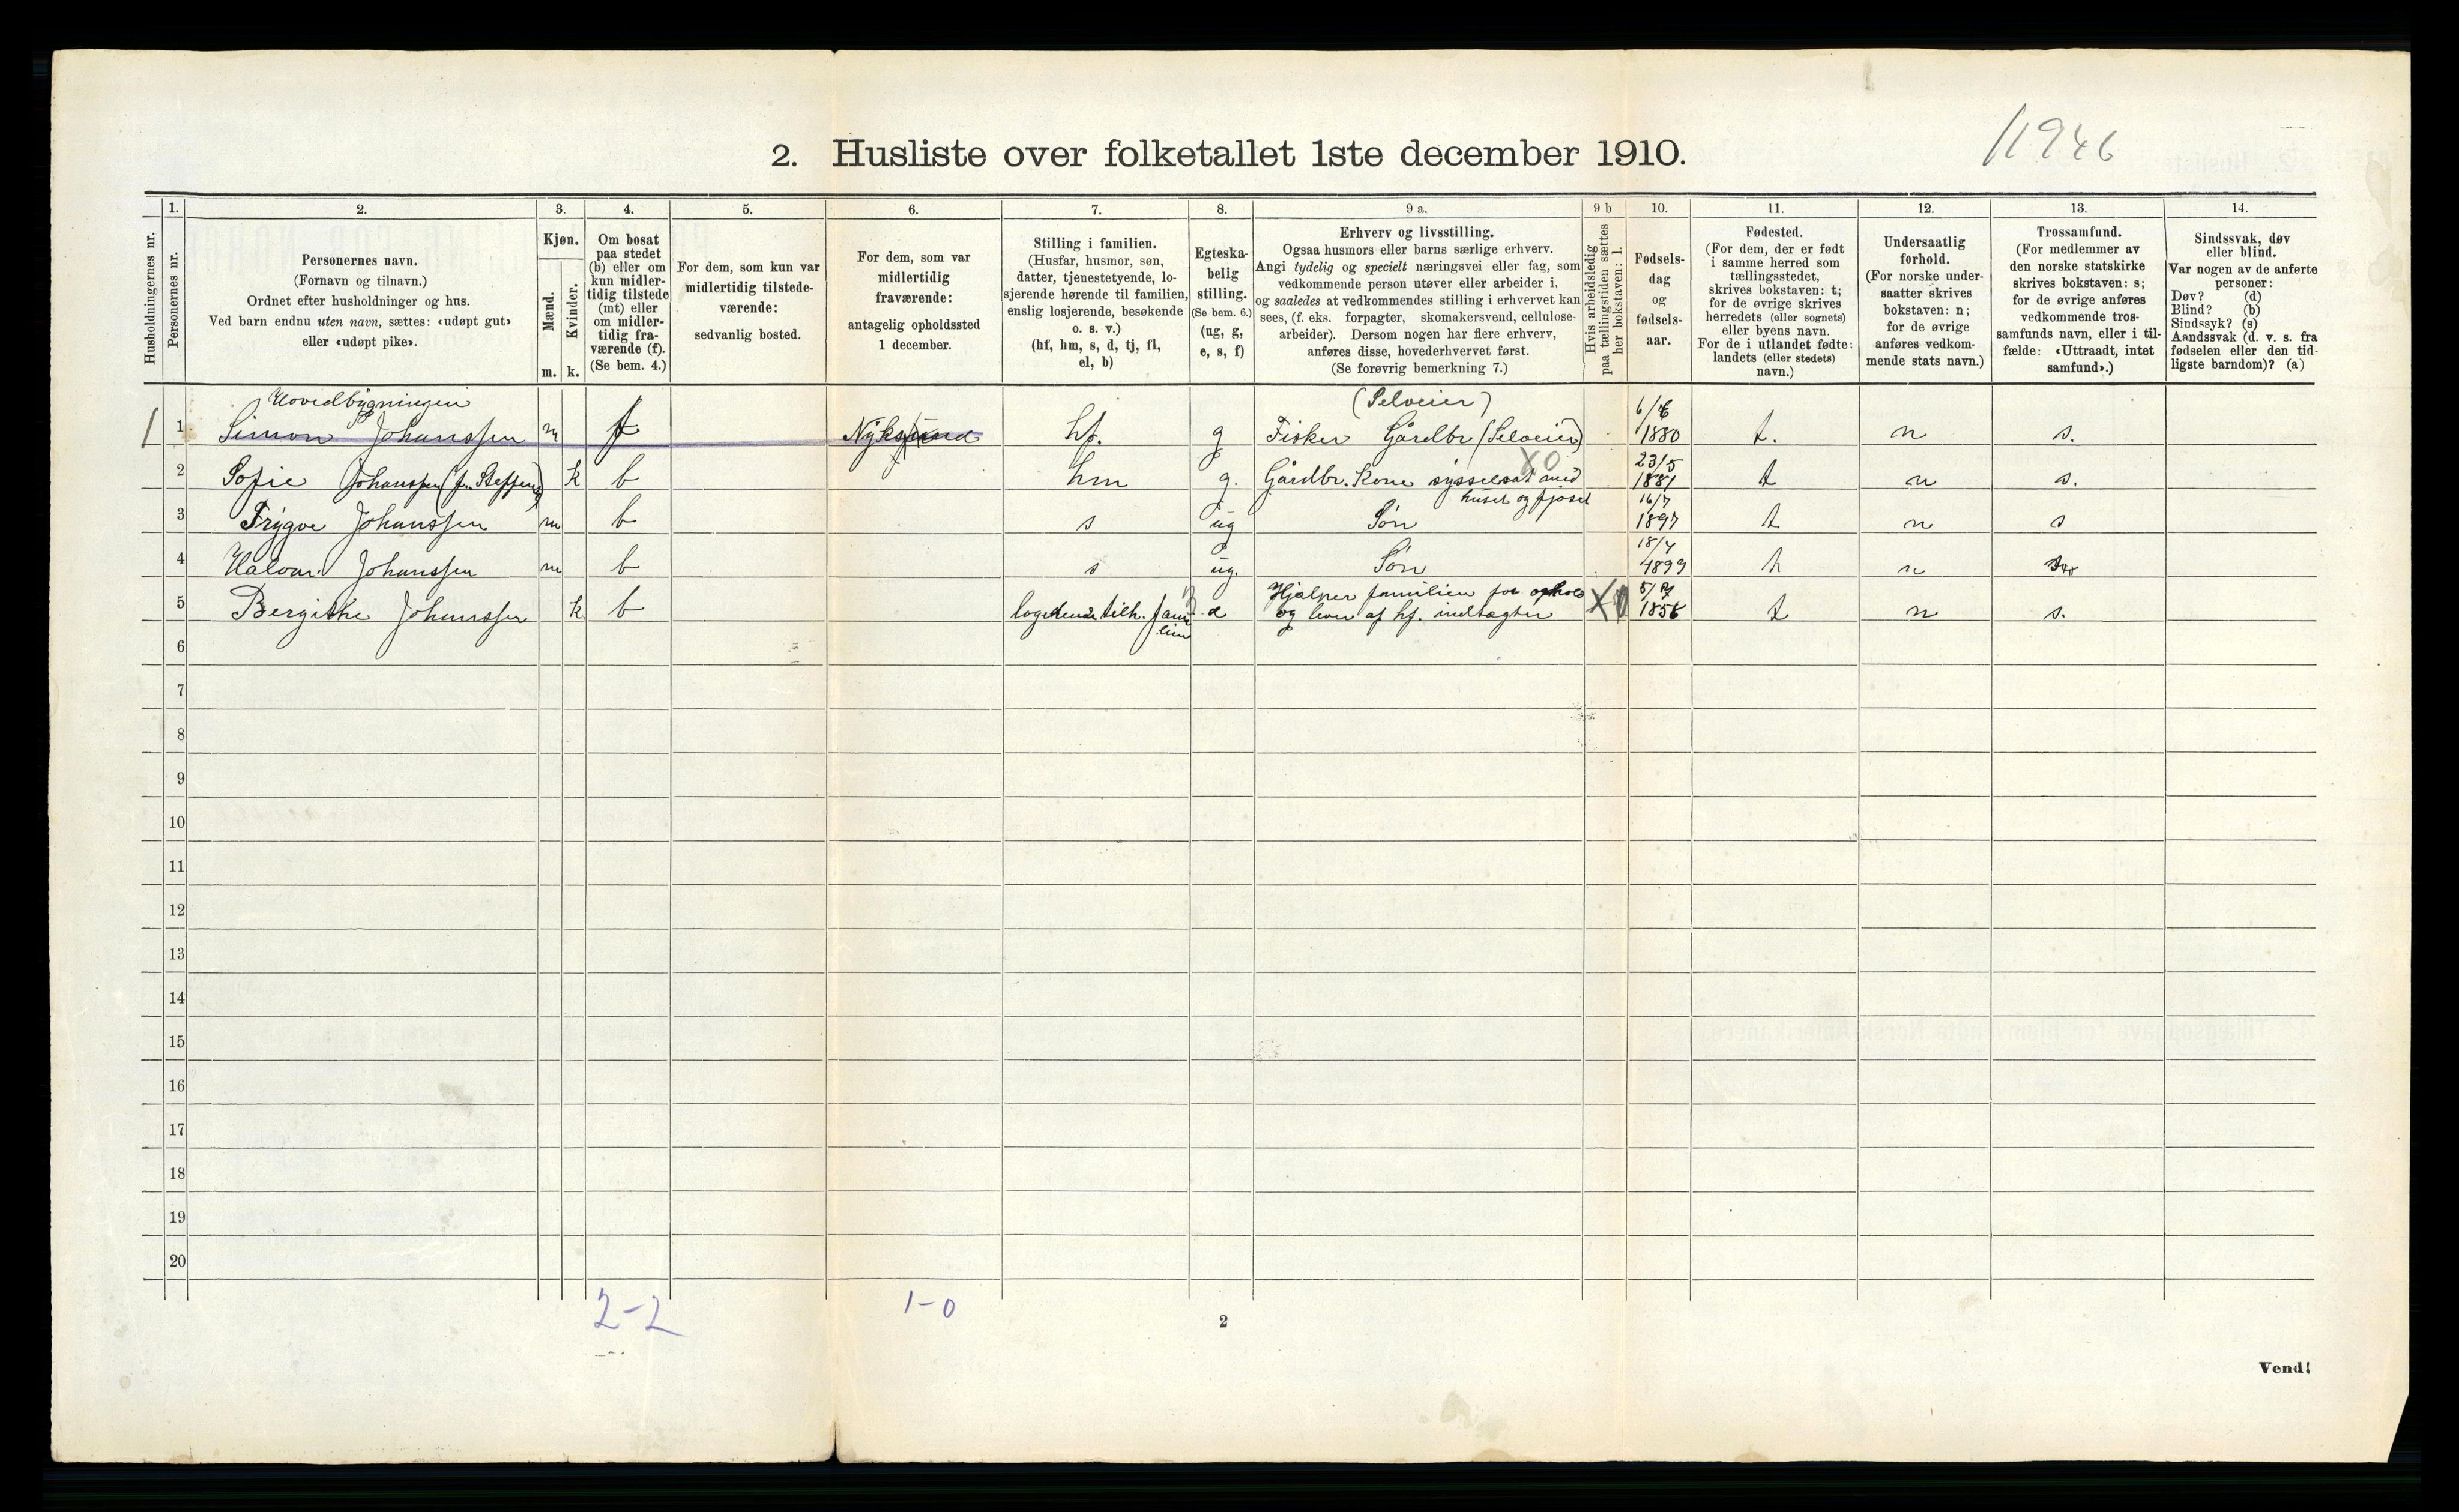 2. Husliste over folketallet 1ste december 1910.
11946
Husholdningernes nr.
1.
Personernes nr.
2.
Personernes navn.
(Fornavn og tilnavn.)
Ordnet efter husholdninger og hus.
Ved barn endnu uten navn, sættes: «udøpt gut»
eller «udøpt pike».
3.
Kjøn.
Mænd.
Kvinder.
m. k.
4.
Om bosat
paa stedet
(b) eller om
kun midler-
tidig tilstede
(mt) eller
om midler-
tidig fra-
værende (f).
(Se bem. 4.)
5.
For dem, som kun var
midlertidig tilstede-
værende:
sedvanlig bosted.
6.
For dem, som var
midlertidig
fraværende:
antagelig opholdssted
1 december.
7.
Stilling i familien.
(Husfar, husmor, søn,
datter, tjenestetyende, lo-
sjerende hørende til familien,
enslig losjerende, besøkende
o. s. v.)
(hf, hm, s, d, tj, fl,
el, b)
8.
Egteska-
belig
stilling.
(Se bem. 6.)
(ug, g,
e, s, f)
9 a.
Erhverv og livsstilling.
Ogsaa husmors eller barns særlige erhverv.
Angi tydelig og specielt næringsvei eller fag, som
vedkommende person utøver eller arbeider i,
og saaledes at vedkommendes stilling i erhvervet kan
sees, (f. eks. forpagter, skomakersvend, cellulose-
arbeider). Dersom nogen har flere erhverv,
anføres disse, hovederhvervet først.
(Se forøvrig bemerkning 7.)
9 b
Hvis arbeidsledig
paa tællingstiden sættes
her bokstaven: l.
10.
Fødsels-
dag
og
fødsels-
aar.
11.
Fødested.
(For dem, der er født
i samme herred som
tællingsstedet,
skrives bokstaven: t;
for de øvrige skrives
herredets (eller sognets)
eller byens navn.
For de i utlandet fødte:
landets (eller stedets)
navn.)
12.
Undersaatlig
forhold.
(For norske under-
saatter skrives
bokstaven: n;
for de øvrige
anføres vedkom-
mende stats navn.)
13.
Trossamfund.
(For medlemmer av
den norske statskirke
skrives bokstaven: s;
for de øvrige anføres
vedkommende tros-
samfunds navn, eller i til-
fælde: «Uttraadt, intet
samfund».)
14.
Sindssvak, døv
eller blind.
Var nogen av de anførte
personer:
Døv? (d)
Blind? (b)
Sindssyk? (s)
Aandssvak (d. v. s. fra
fødselen eller den tid-
ligste barndom)? (a)
Hovedbygningen
(Selveier)
1 1 Simon Johanssen m f Nyksund hf. g Fisker Gårdbr (Selveier) 1880 t. n s.
X0
2 Sofie Johanssen (f. Steffens) k b hm g. Gårdbr. Kone sysselsat med huset og fjøset 23/5 1881 t n s.
3 Trygve Johanssen m b s ug Søn 16/7 1897 t n s
4 Halvar Johanssen m b s ug. Søn 1899 n
5 Bergitke Johanssen k b logerende tilh. familien Hjælper familien for ophold og lever af hf. indtægter X0 t n s.
6
7
8
9
10
11
12
13
14
15
16
17
18
19
20
2-2
1-0
2
Vend!